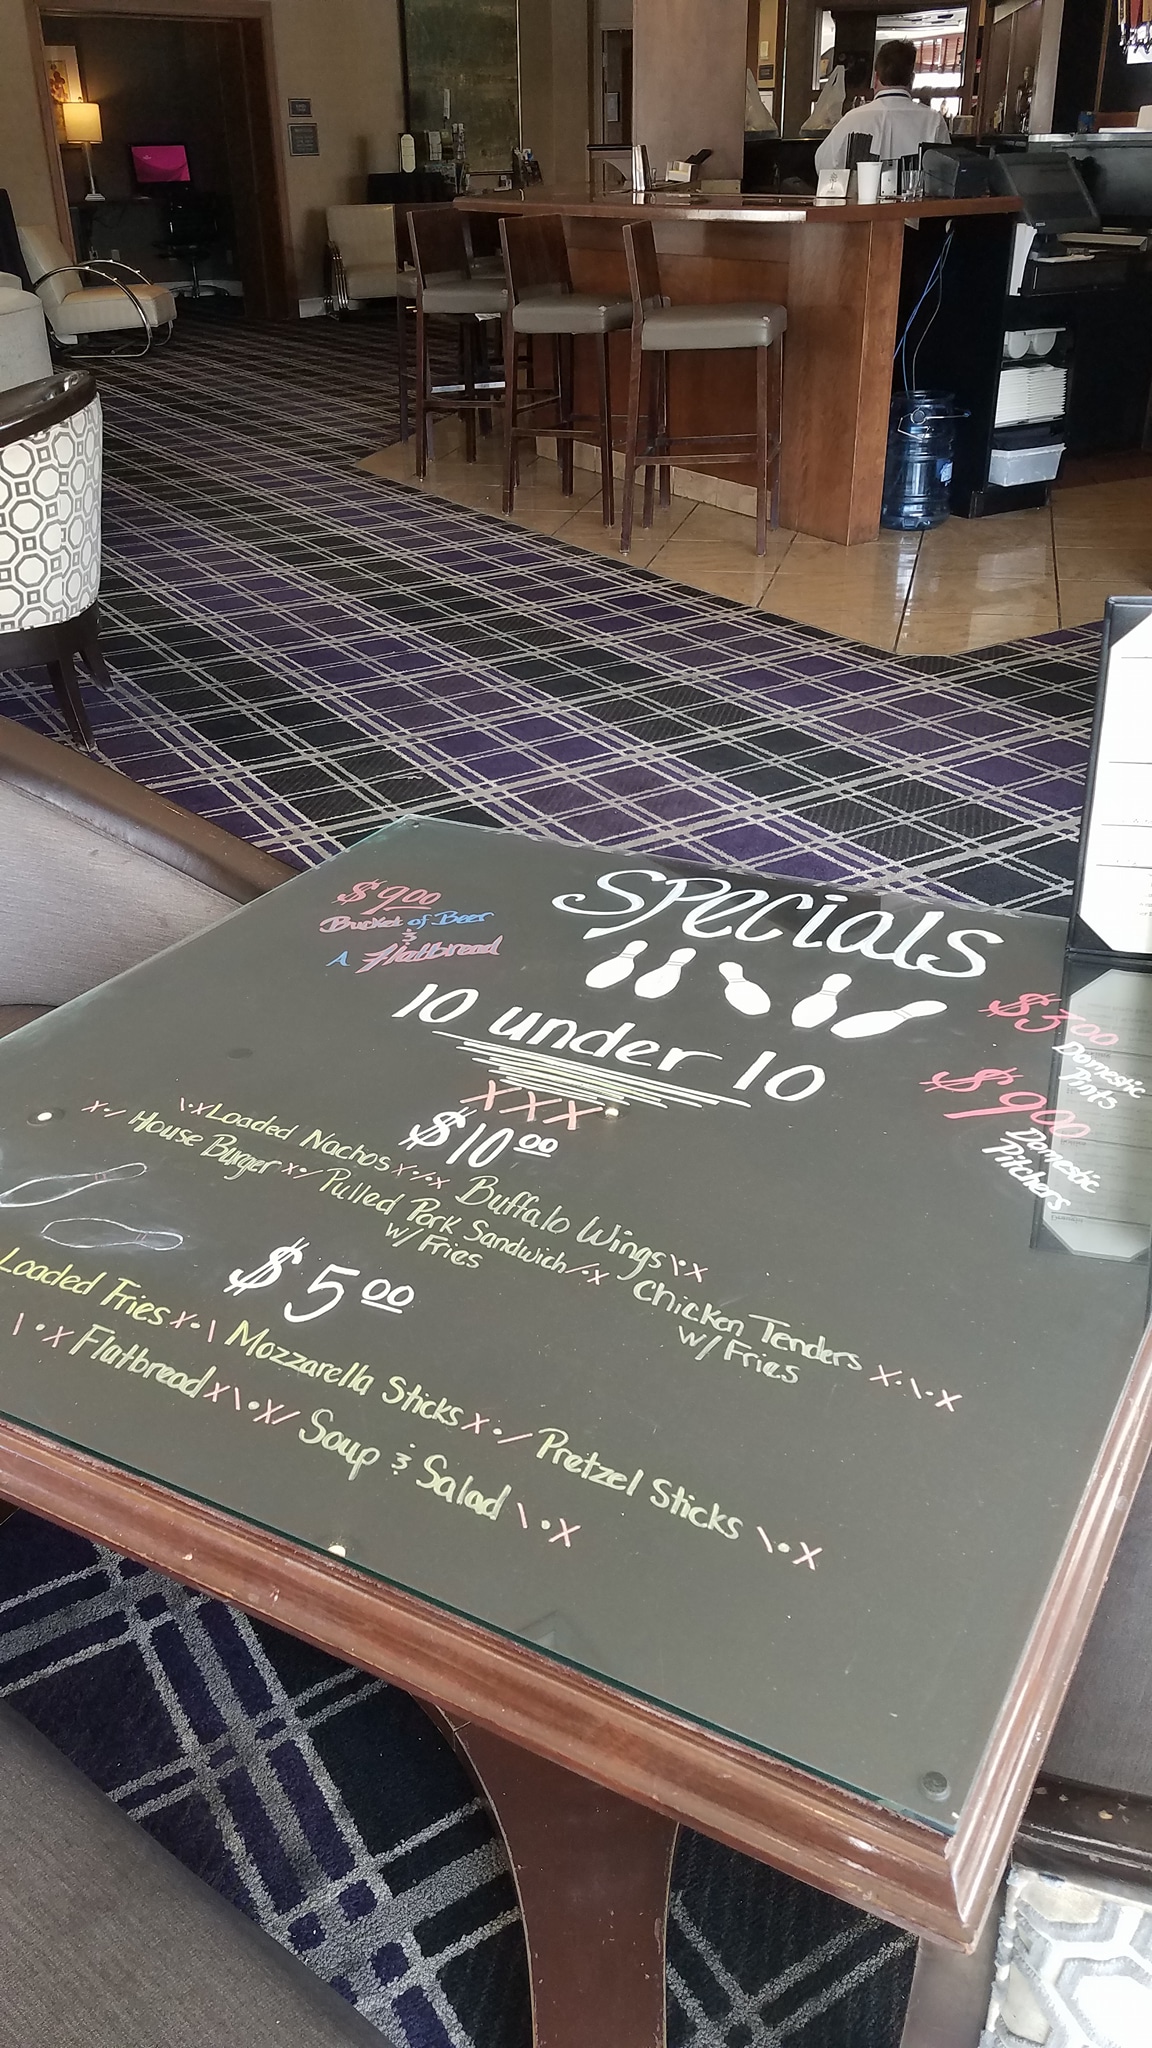 Specials
$9.00
Bucket of Beer
&
A Flatbread
10 under 10
XXX
$3.00
Domestic
Pints
$9.00
Domestic
Pitchers
$10.00
\•X Loaded Nachos X•/•X Buffalo Wings \•X
X•/ House Burger X•/ Pulled Pork Sandwich /•X Chicken Tenders X•\•X
w/ Fries
w/ Fries
$5.00
Loaded Fries X•\ Mozzarella Sticks X•/ Pretzel Sticks \•X
\•X Flatbread X\•X/ Soup & Salad \•X